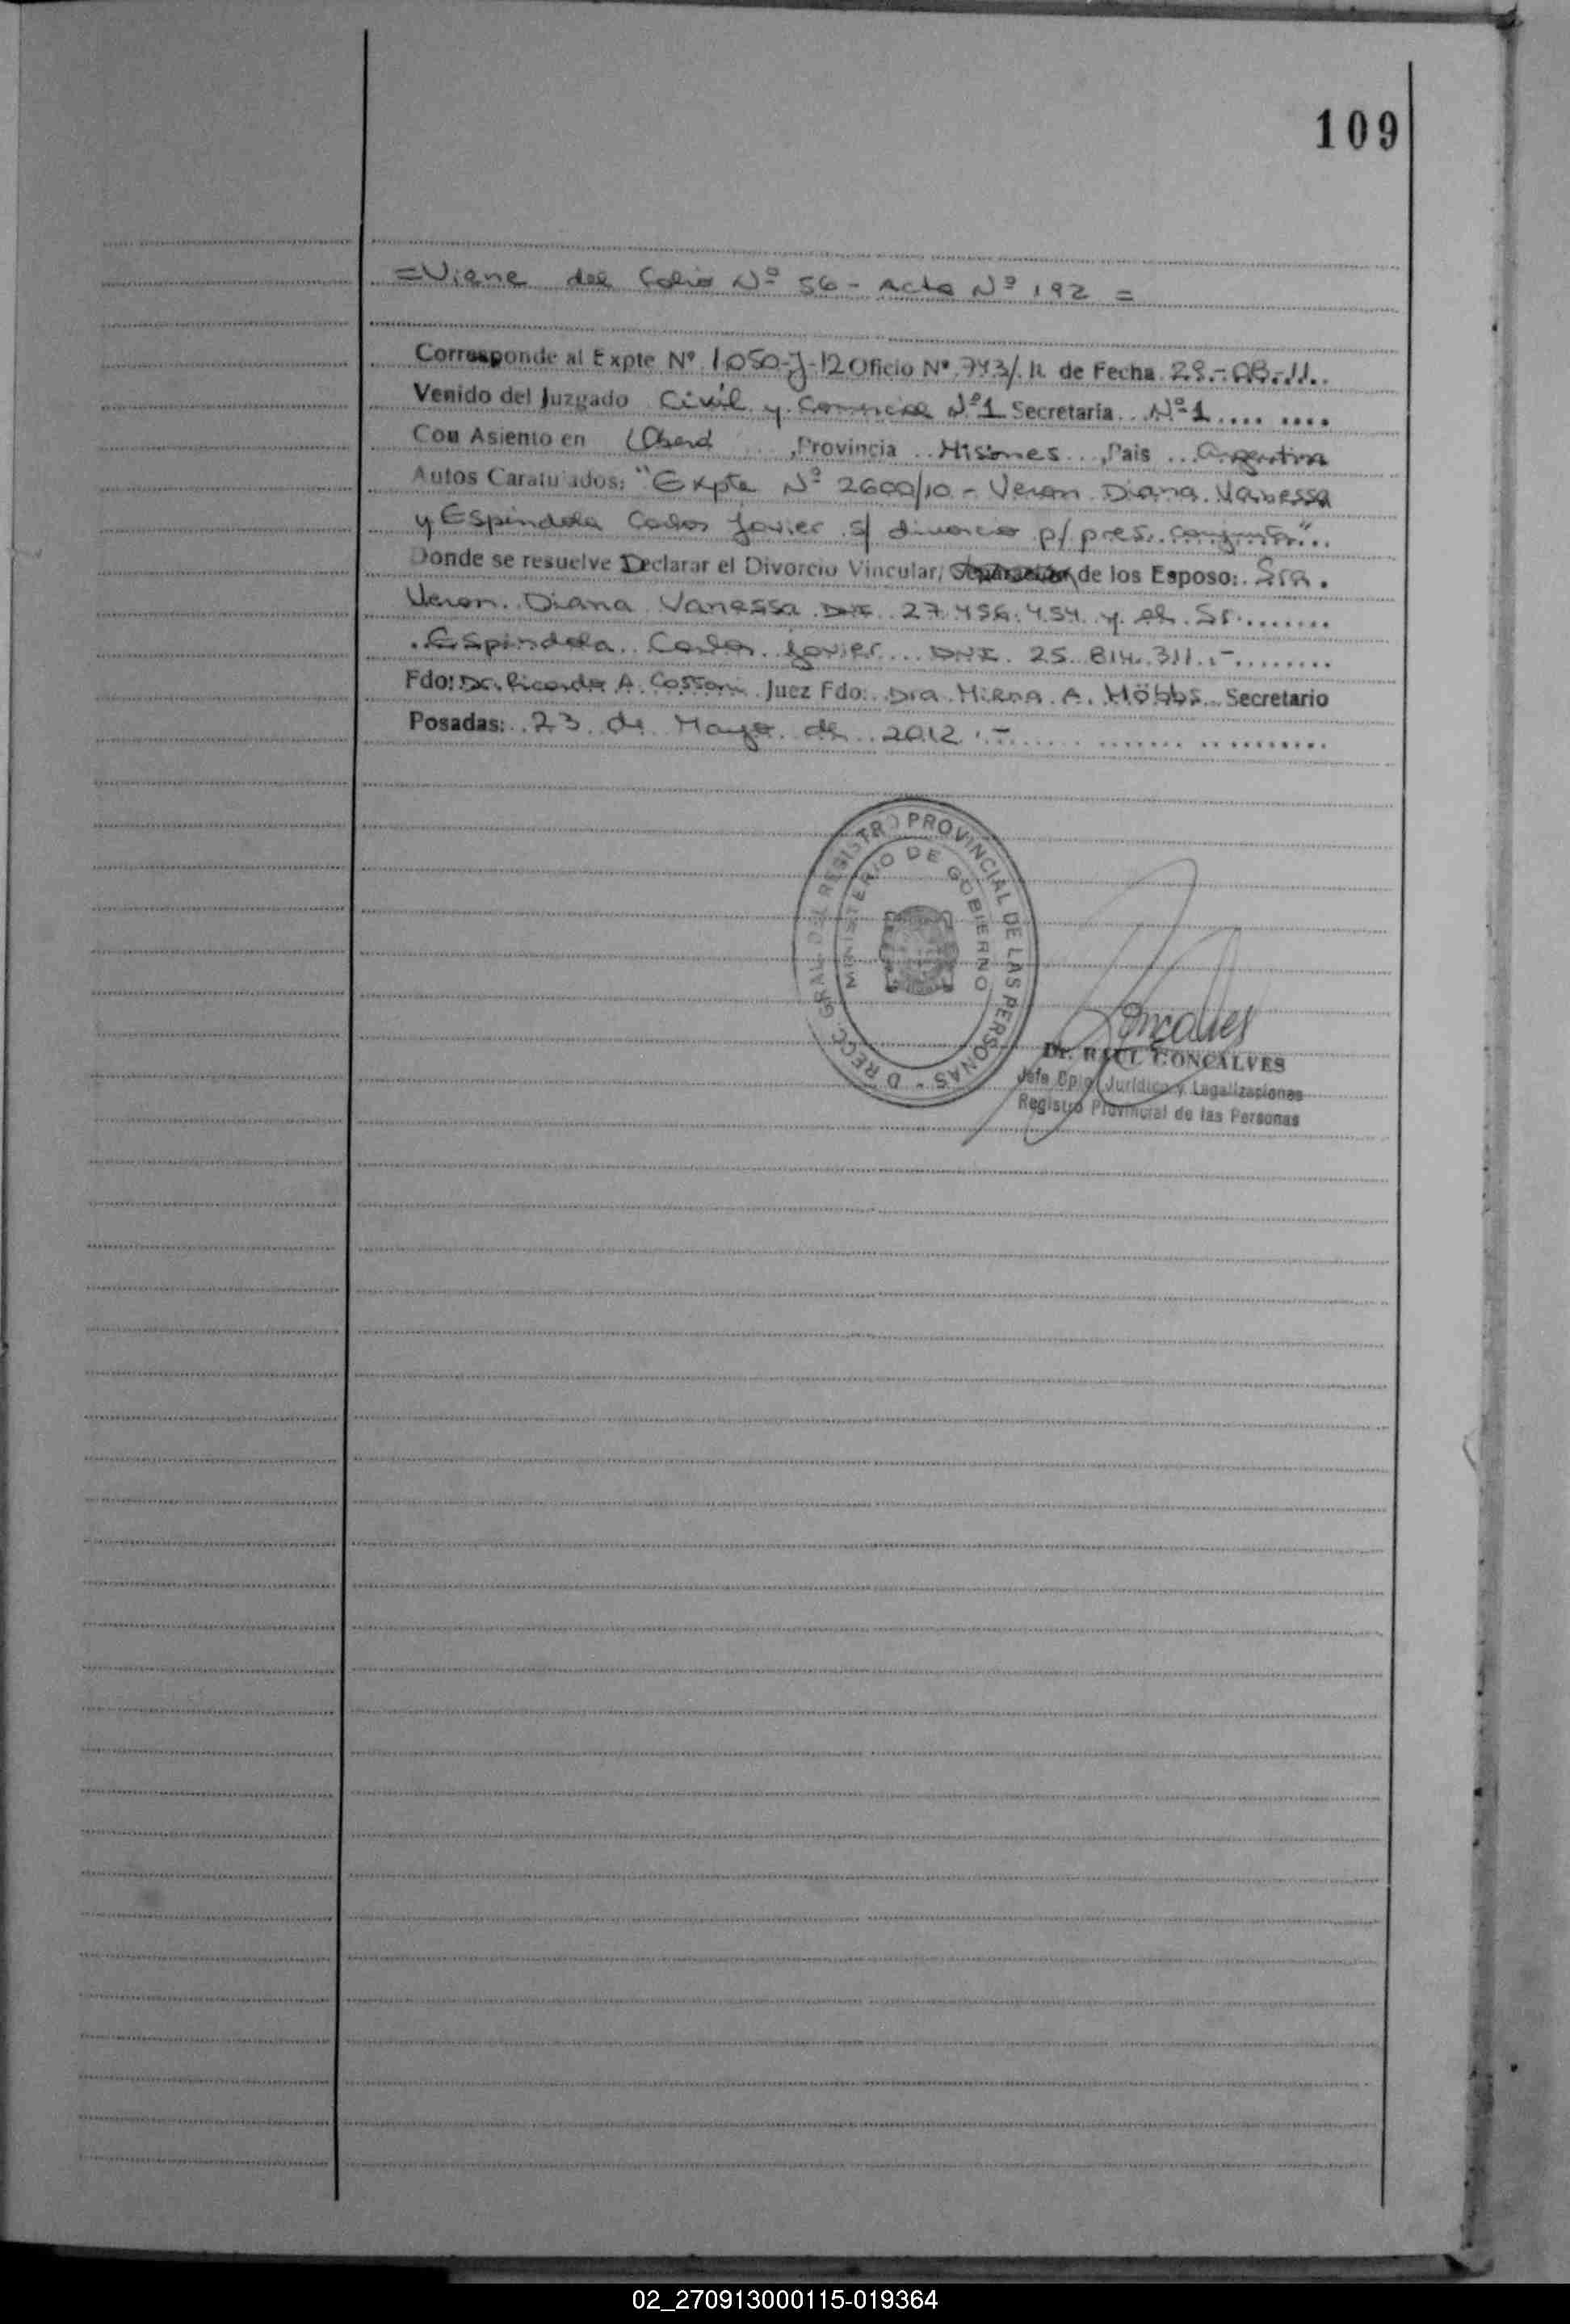 109
=Viene del Folio Nº 56 - Acta Nº 192 =
Corresponde al Expte Nº 1050-J-12 Oficio Nº 743/11 de Fecha 29.-08.-11..
Venido del Juzgado Civil y Comercial Nº1 Secretaria.. Nº-1.... ....
Con Asiento en Oberá ...,Provincia ..Misiones...,Pais ...Argentina
Autos Caratulados: "Expte Nº 2600/10 - Veron Diana Vanessa
y Espindola Carlos Javier s/ divorcio p/ pres. conjunta"..
Donde se resuelve Declarar el Divorcio Vincular, de los Esposo:. Sra.
Veron. Diana Vanessa DNI. 27.456.454 y el Sr.......
.Espindola.. Carlos. Javier... DNI. 25.814.311.-........
Fdo: Dr. Ricardo A. Juez Fdo:. Dra. Mirna. A. Höbbs... Secretario
Posadas:. 23. de Mayo. de. 2012.-..... ....... .. .........
DIRECC. GRAL. DEL REGISTRO PROVINCIAL DE LAS PERSONAS -
MINISTERIO DE GOBIERNO
Goncalves
Dr. RAUL GONCALVES
Jefe Dpto. Jurídico y Legalizaciones
Registro Provincial de las Personas
02_270913000115-019364